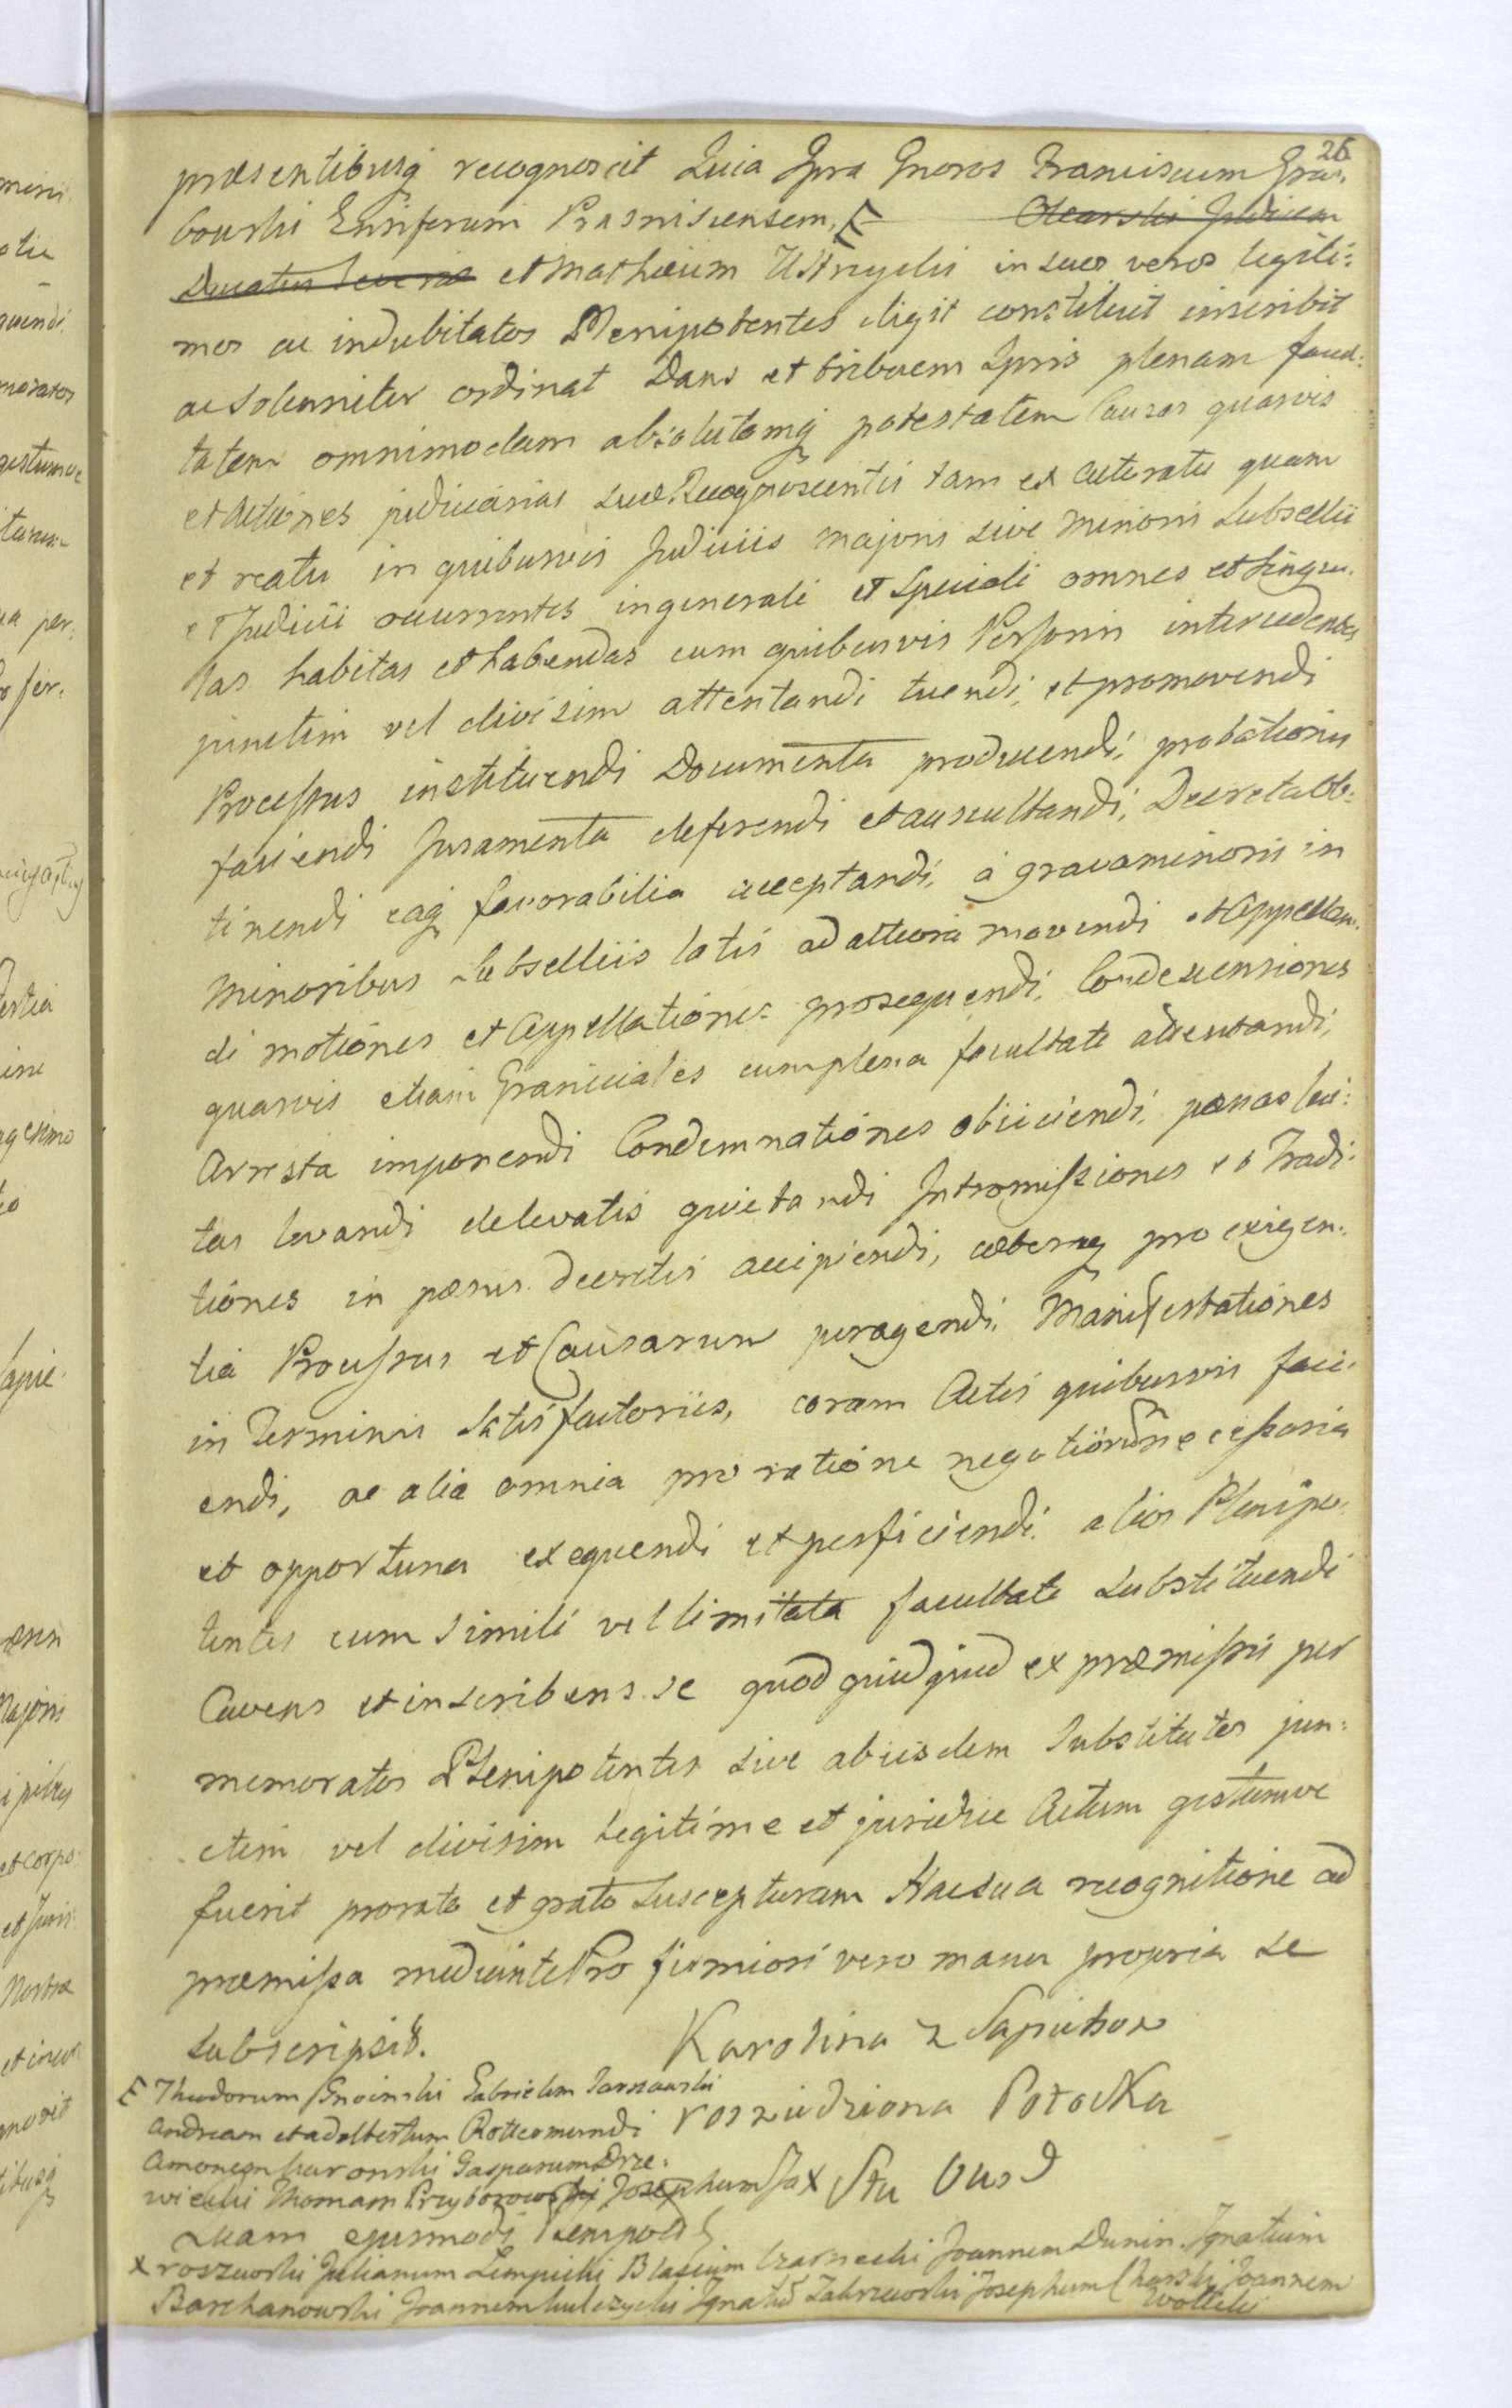 26
præsentibusq recognoscit Quia Ipsa Gnoros Franciscum Gra-
bowski Ensiferum Prasnisciensem, E Olearski Judicem
Ducatus Severiæ et Mathæum Ustrzycki in suos veros legiti:
mos ac indubitatos Plenipotentes eligit constituit inscribit
ac solenniter ordinat Dans et tribuens Ipsis plenam facul:
tatem omnimodam absolutamq potestatem Causas quasvis
et Actiones judiciarias suæ Recognoscentis tam ex Actoratu quam
et reatu in quibusvis Judiciis majoris sive minoris Subsellii
et Judicii occurrentes in generali et Speciali omnes et singu-
las habitas et habendas cum quibusvis Personis intercedentes
junctim vel divisim attentandi tuendi, et promovendi
Processus instituendi Documenta producendi, probationes
faciendi Juramenta deferendi et auscultandi, Decreta Ob:
tinendi eaq favorabilia acceptandi, à gravaminosis in
minoribus Subselliis latis ad altiora movendi et Appellan-
di motiones et Appellationes prosequendi, Condescensiones
quasvis etiam Graniciales cum plena facultate attentandi,
Arresta imponendi Condemnationes obiiciendi, pænas luci:
tas levandi de levatis quietandi Intromissiones et Tradi:
tiones in pænis decretis accipiendi, cæteraq pro exigen:
tia Processus et Causarum peragendi, Manifestationes
in Terminis Satisfactoriis, coram Actis quibusvis faci:
endi, ac alia omnia pro ratione negotiorũ necessaria
et opportuna exequendi et perficiendi, alios Plenipo:
tentes cum simili vel limitata facultate substituendi
Cavens et inscribens se quod quidquid ex præmissis per
memoratos Plenipotentes sive ab iisdem Substitutos jun:
ctim vel divisim legitime et juridice Actum gestumve
fuerit pro rato et grato suscepturam Hac sua recognitione ad
præmissa mediante Pro firmiori vero manu propria se
subscripsit.
Karolina z Sapiehow
rozwiedziona Potocka
E Theodorum Gnoinski Gabrielem Tarnawski
Andream et Adalbertum Rottermundi
Gasparum Drze:
wiecki Thomam Przyborowski Josephum Ja X
Quam ejusmodi
X roszewski Julianum Lempicki Blasium Czarnecki Joannem Dunin Ignatium
Barchanowski Joannem Kulczycki Ignatiũ Zakrzewski Josephum Joannem
Wollicki